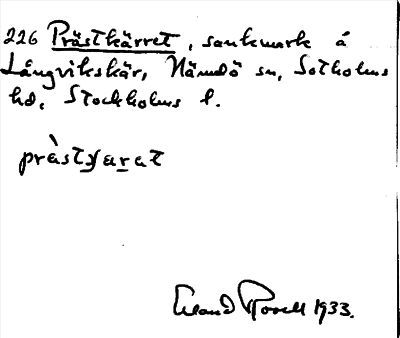 226 Prästkärret, sankmark å
Långvikskär, Nämdö sn, Sotholms
hd, Stockholms l.
Erland Rosell 1933.